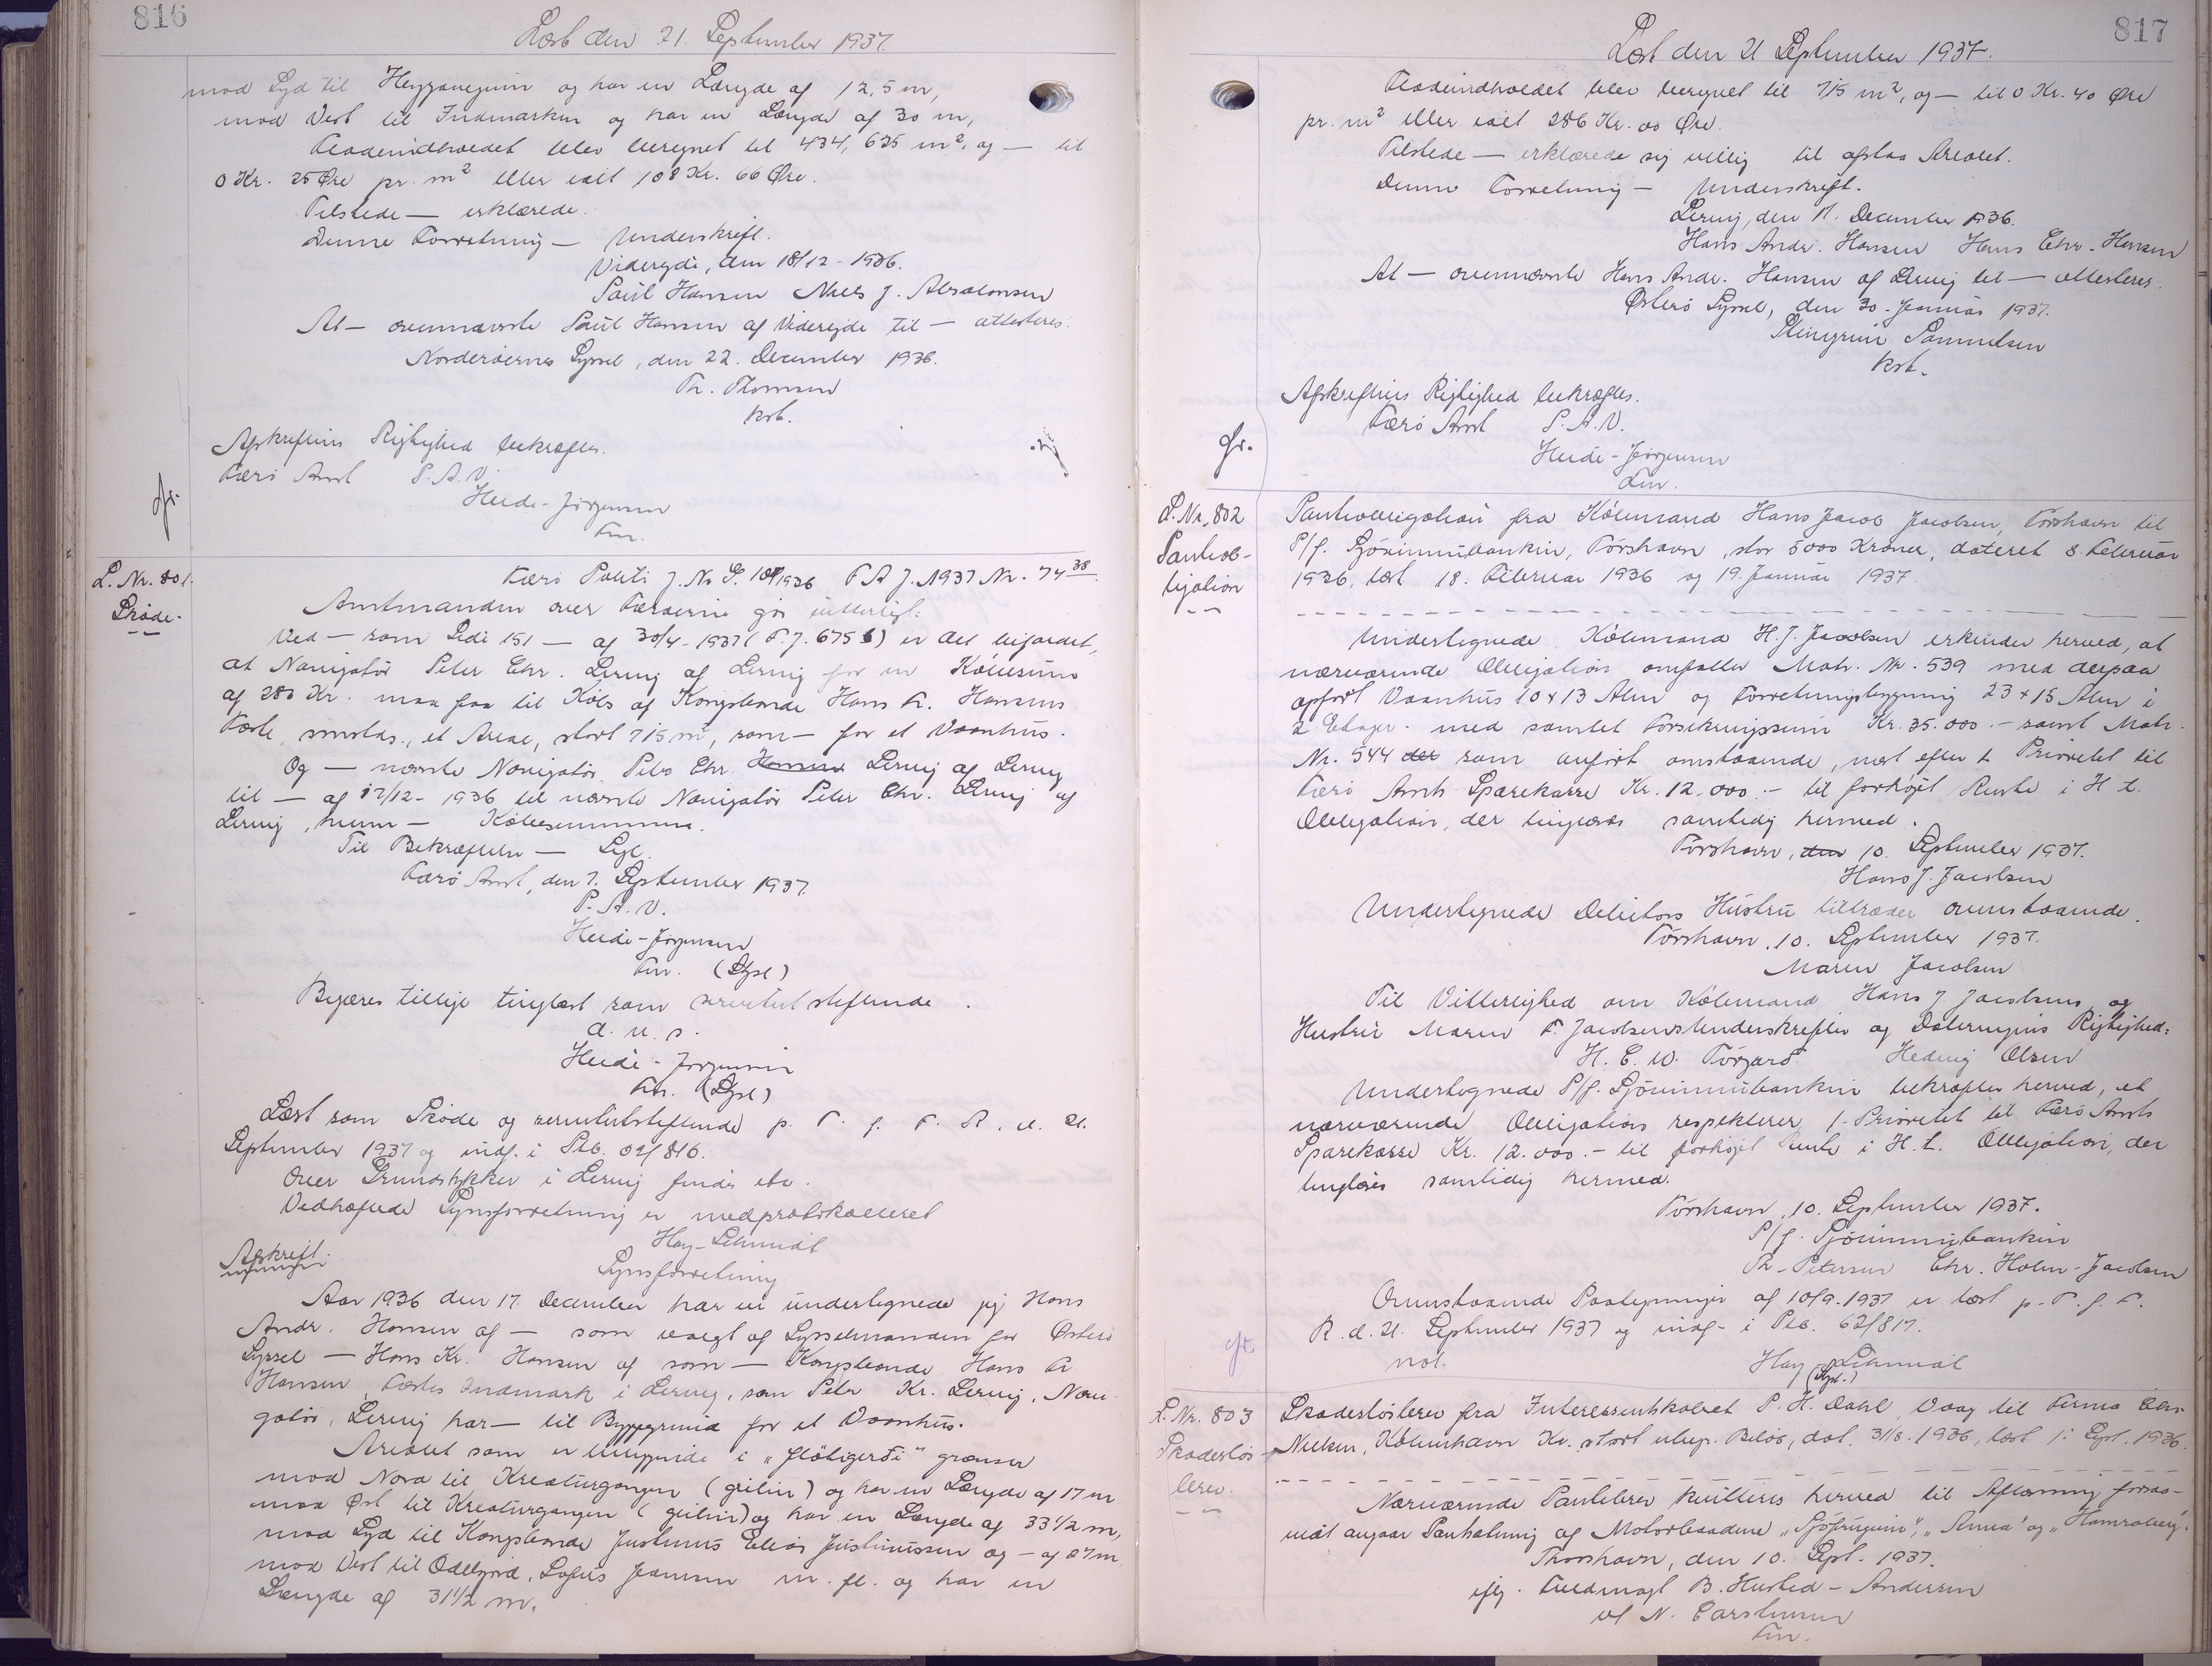 816
Læst den 21. September 1937.
mod Syd til Heyggavegurin og har en Længde af 12,5 m,
mod Vest til Indmarken og har en Længde af 30 m,
Fladeindholdet blev beregnet til 434,625 m², og — til
0 Kr. 25 Øre pr. m² eller ialt 108 Kr. 66 Øre.
Tilstede — erklærede.
Denne Forretning — Underskrift.
Videreyde, den 18/12 - 1936.
Poul Hansen Niels J. Absalonsen
At — ovennævnte Poul Hansen af Viderejde til — attesteres.
Norderøernes Syssel, den 22. December 1936.
Th. Thomsen
kst.
Afskriftens Rigtighed bekræftes.
Færø Amt P.A.V.
Heide-Jørgensen
Fm.
L. Nr. 801.
Skøde.
Færø Politi J. Nr. S. 109/1936 F A J. 1937 Nr. 74 38.
Amtmanden over Færøerne gør vitterligt:
Ved — som Sedi 151 — af 30/4 - 1937 (F J. 675 6) er det bifaldet,
at Navigatør Peter Chr. Lervig af Lervig for en Købesum
af 286 Kr. maa faa til Købs af Kongsbonde Hans Fr. Hansens
Fæste, smstds., et Areal, stort 715 m², som — for et Vaanhus.
Og — nævnte Navigatør Peter Chr. Hansen Lervig af Lervig
til — af 17/12 - 1936 til nævnte Navigatør Peter Chr. Lervig af
Lervig, hvem — Købesummen.
Til Bekræftelse — Segl.
Færø Amt, den 7. September 1937.
P.A.V.
Heide-Jørgensen
Fm. (Segl)
Begæres tillige tinglæst som servitutstiftende.
d. u. s.
Heide-Jørgensen
Fm. (Segl)
Læst som Skøde og servitutstiftende p. T. f. F. R. d. 21.
September 1937 og indf. i Skb. 02/816.
Over Grundstykker i Lervig findes ebr.
Vedhæftede Synsforretning er medprotokolleret
Hay-Schmidt
Afskrift.
Synsforretning
Aar 1936 den 17. December har vi undertegnede jeg Hans
Andr. Hansen af — som valgt af Sysselmanden for Østerø
Syssel — Hans Kr. Hansen af som — Kongsbonde Hans Fr
Hansen, Fæstes Indmark i Lervig, som Peter Kr. Lervig, Navi-
gatør, Lervig har — til Byggegrund for et Vaanhus.
Arealet som er beliggende i „fløtigerði" grænser
mod Nord til Kreaturgangen (geilin) og har en Længde af 17 m
mod Øst til Kreaturgangen (geilin) og har en Længde af 33 1/2 m,
mod Syd til Kongsbonde Justinus Elias Justinussen og — af 27 m
mod Vest til Odelsjord, Sofus Joensen m. fl. og har en
Længde af 31 1/2 m.
817
Læst den 21 September 1937.
Fladeindholdet blev beregnet til 715 m², og — til 0 Kr. 40 Øre
pr. m² eller ialt 286 Kr. 00 Øre.
Tilstede — erklærede sig villig til afstaa Arealet.
Denne Forretning — Underskrift.
Lervig, den 17. December 1936.
Hans Andr. Hansen Hans Chr. Hansen
At — ovennævnte Hans Andr. Hansen af Lervig til — attesteres.
Østerø Syssel, den 30. Januar 1937.
Steingrim Samuelsen
kst.
Afskriftens Rigtighed bekræftes.
Færø Amt P.A.V.
Heide-Jørgensen
Fm.
L. Nr. 802
Pantob-
ligation
Pantobligation fra Købmand Hans Jacob Jacobsen, Torshavn til
P/f. Sjóvinnubankin, Tórshavn, stor 5000 Kroner, dateret 8. Februar
1936, læst 18. Februar 1936 og 19. Januar 1937.
Undertegnede Købmand H. J. Jacobsen erkender herved, at
nærværende Obligation omfatter Matr. Nr. 539 med derpaa
opført Vaanhus 10 x 13 Alen og Forretningsbygning 23 x 15 Alen i
2 Etager. med samlet Forsikringssum Kr. 35.000.- samt Matr.
Nr. 544 der som anført omstaaende, næst efter 1. Prioritet til
Færø Amts Sparekasse Kr. 12.000.- til forhøjet Rente i H. t.
Obligation, der tinglæses samtidig hermed.
Tórshavn, den 10. September 1937.
Hans J. Jacobsen
Undertegnede Debitors Hustru tiltræder ovenstaaende.
Tórshavn, 10. September 1937.
Maren Jacobsen
Til Vitterlighed om Købmand Hans J Jacobsens og
Hustru Maren F. Jacobsens Underskrifter og Dateringens Rigtighed:
H. C. W. Tórgarð Hedvig Olsen
Undertegnede P/f. Sjóvinnubankin bekræfter herved, at
nærværende Obligation respekterer 1. Prioritet til Færø Amts
Sparekasse Kr. 12.000.- til forhøjet Rente i H. t. Obligation, der
tinglæses samtidig hermed.
Tórshavn, 10. September 1937.
P/f. Sjóvinnubankin
Th. Petersen Chr. Holm-Jacobsen
Ovenstaaende Paategninger af 10/9-1937 er læst p. T. f. F.
R. d. 21. September 1937 og indf. i Skb. 62/817.
not. Hay-Schmidt
(Segl.)
L. Nr. 803
Skadesløs-
brev.
Skadesløsbrev fra Interessentskabet P. H. Dahl, Vaag til Firma Chr.
Nielsen, København Kr. stort ubegr. Beløb, dat. 31/8. 1936, læst 1. Sept. 1936.
Nærværende Pantebrev kvitteres herved til Aflæsning forsaa-
vidt angaar Panthæftning af Motorbaadene „Sjófrúgvin", „Anna" og „Hamraberg".
Thorshavn, den 10. Sept. 1937.
iflg. Fuldmagt B. Husted-Andersen
v/ N. Carstensen
Fm.